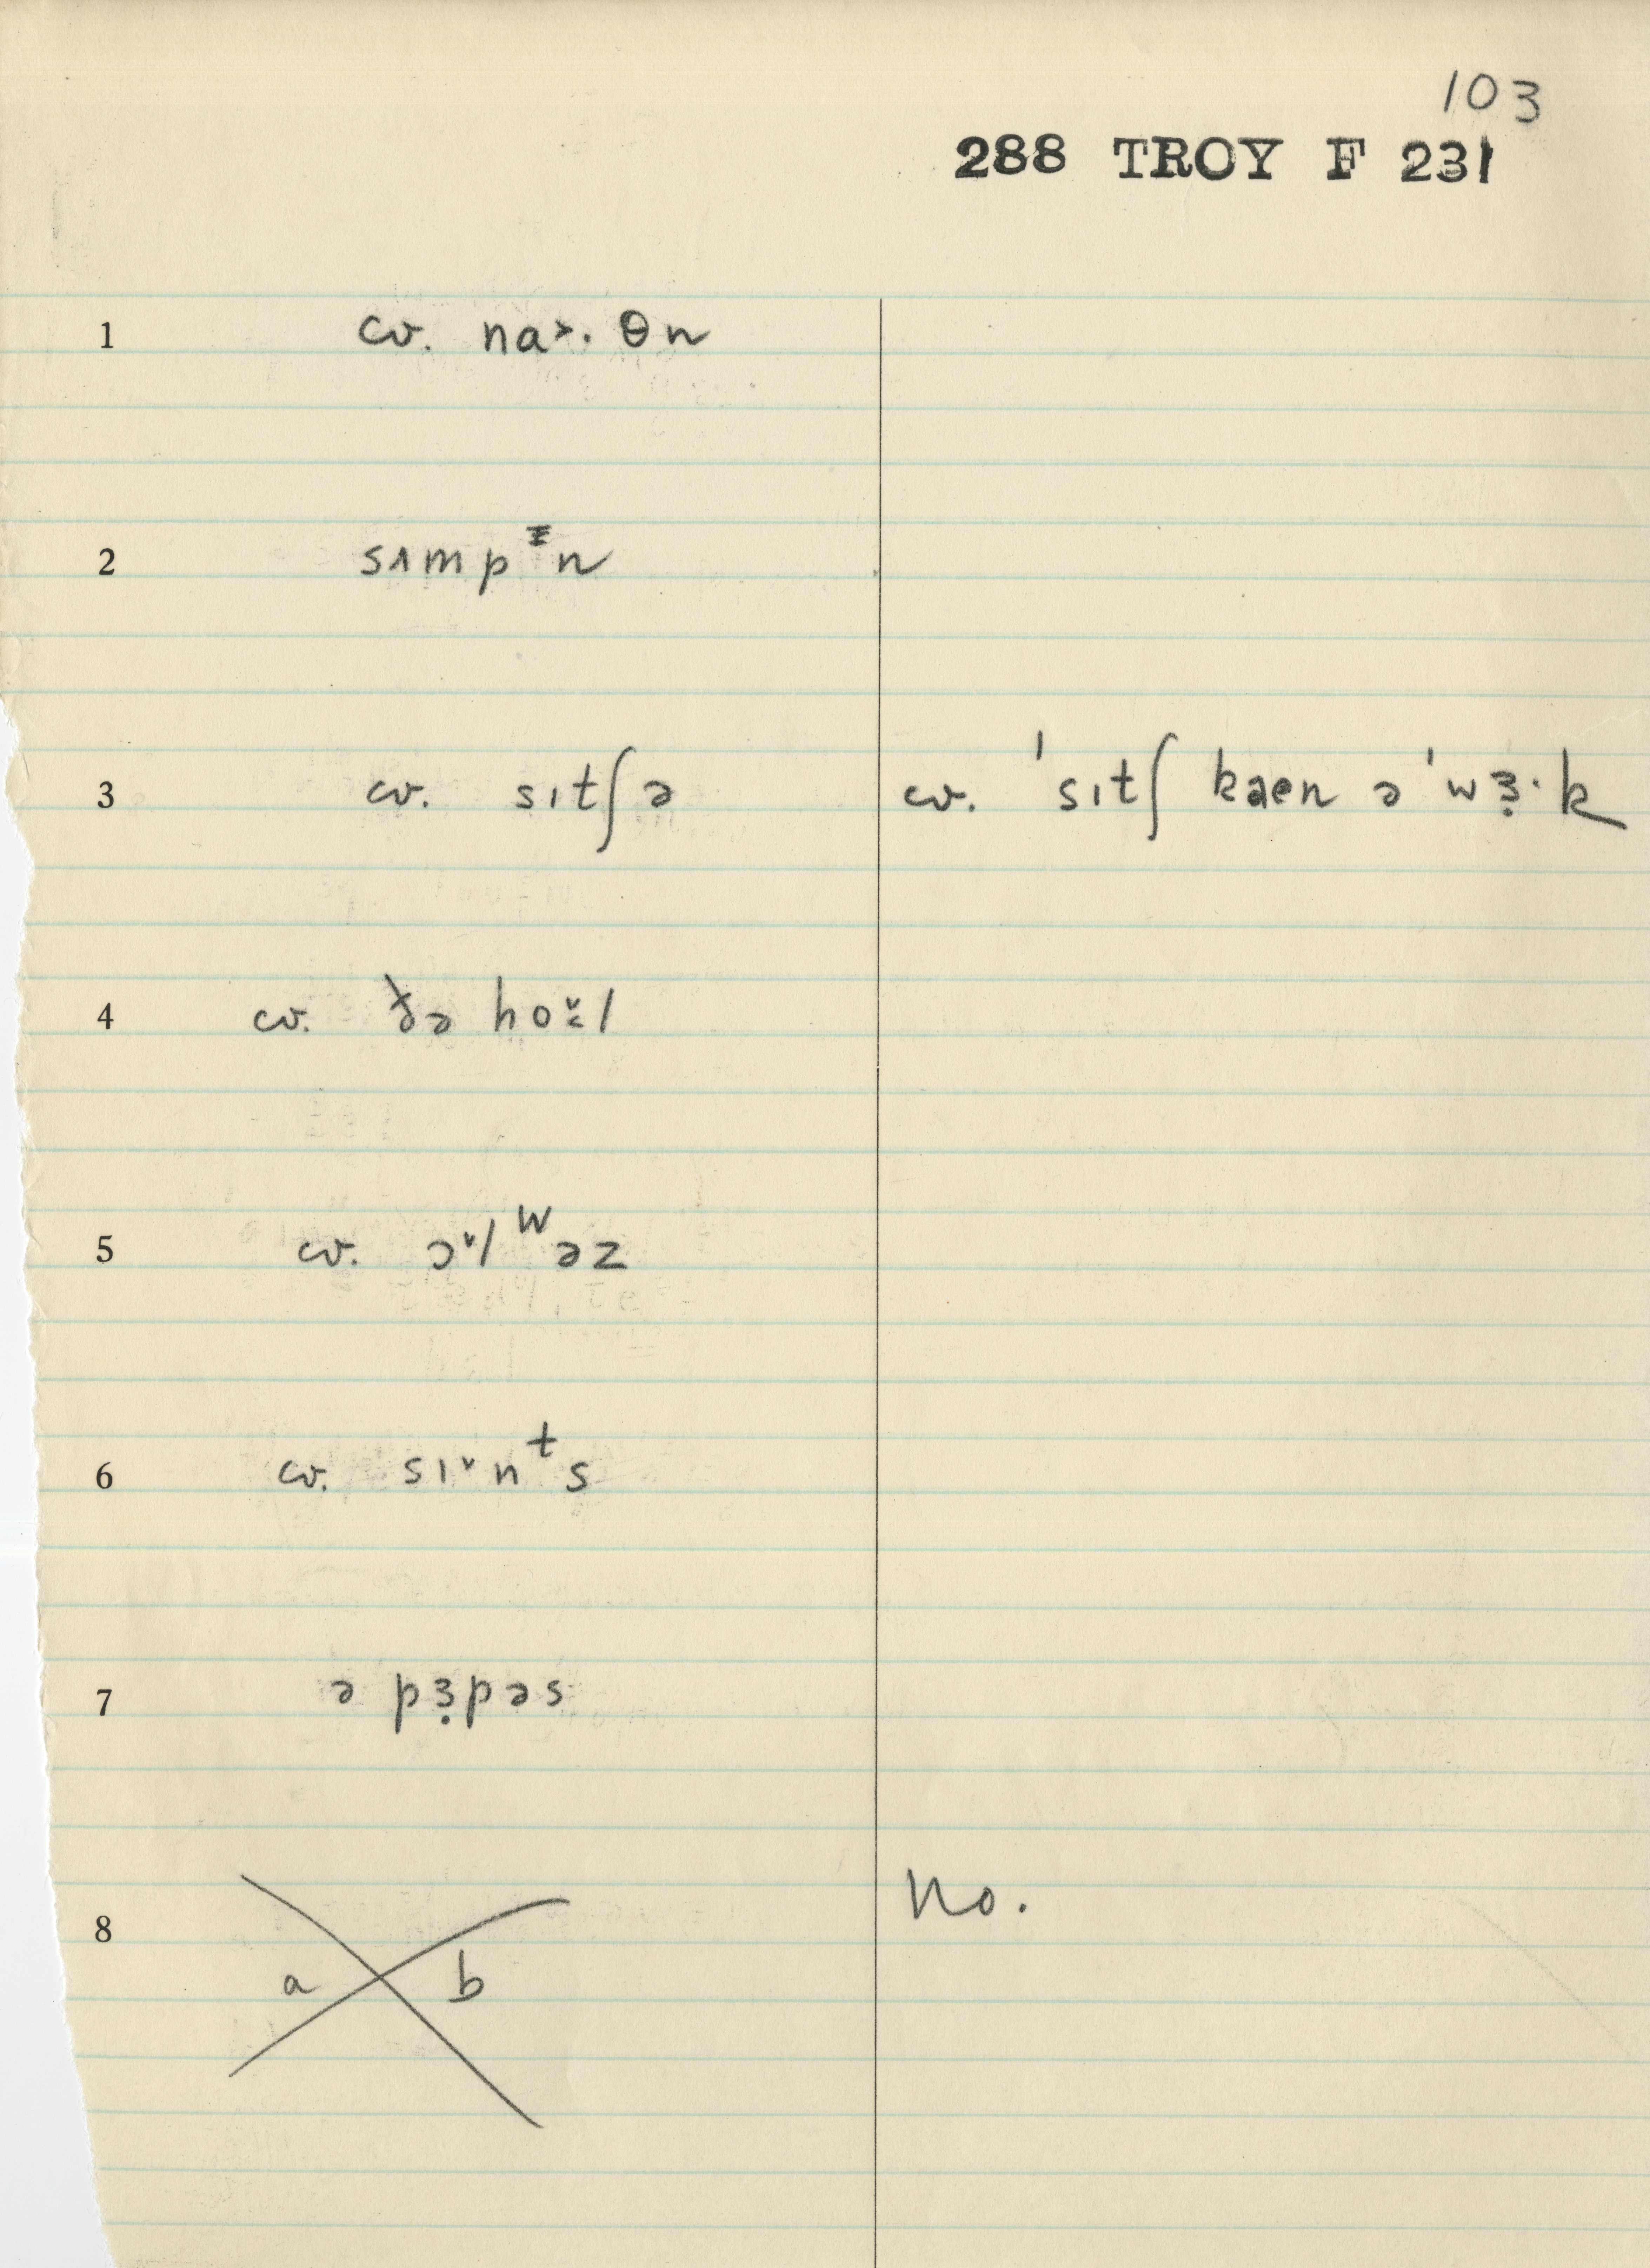 103
288 TROY F 231
1 cv. na˃. θn
2 sʌmpᵻn
3 cv. sɪtʃə cv. ˈsɪtʃ kaen əˈwɜ̣·k
4 cv. ðə ho̬l
5 cv. ɔ˅lᵂəz
6 cv. sɪ˅nᵗs
7 ə pɜ̣pəs
8 a b No.